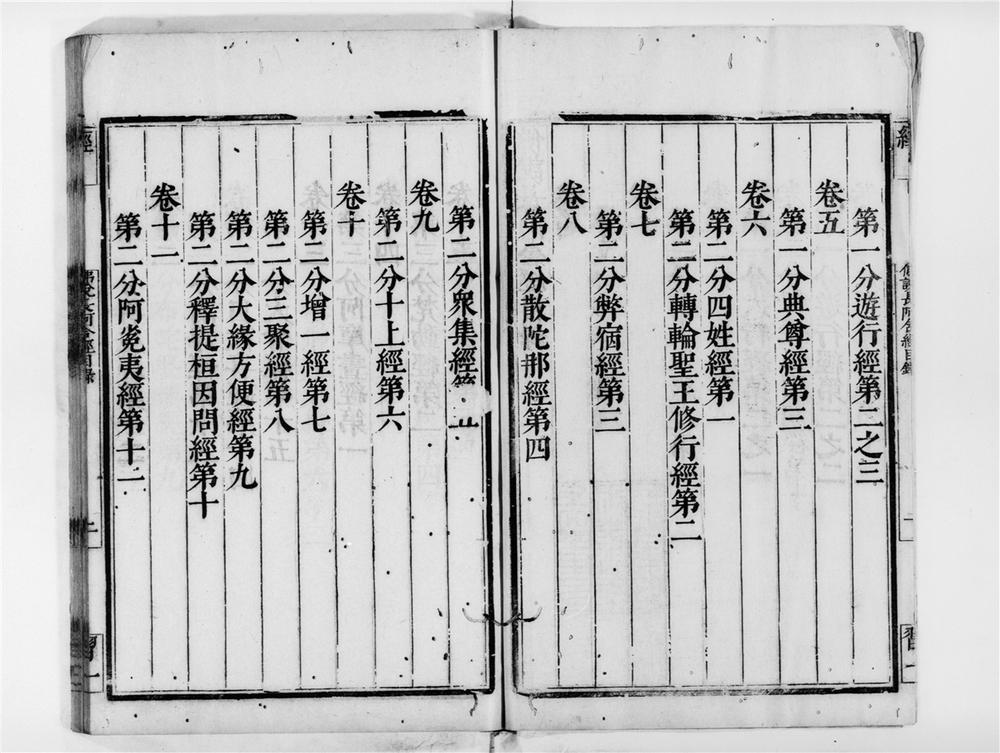 第一分遊行經第二之三
卷五
第一分典尊經第三
卷六
第二分四姓經第一
第二分轉輪聖王修行經第二
卷七
第二分弊宿經第三
卷八
第二分散陀那經第四
第二分眾集經第
卷九
第二分十上經第六
卷十
第二分增一經第七
第二分三聚經第八
第二分大緣方便經第九
第二分釋提桓因問經第十
卷十一
第二分阿㝹夷經第十一
經
佛說長阿含經目錄
習一